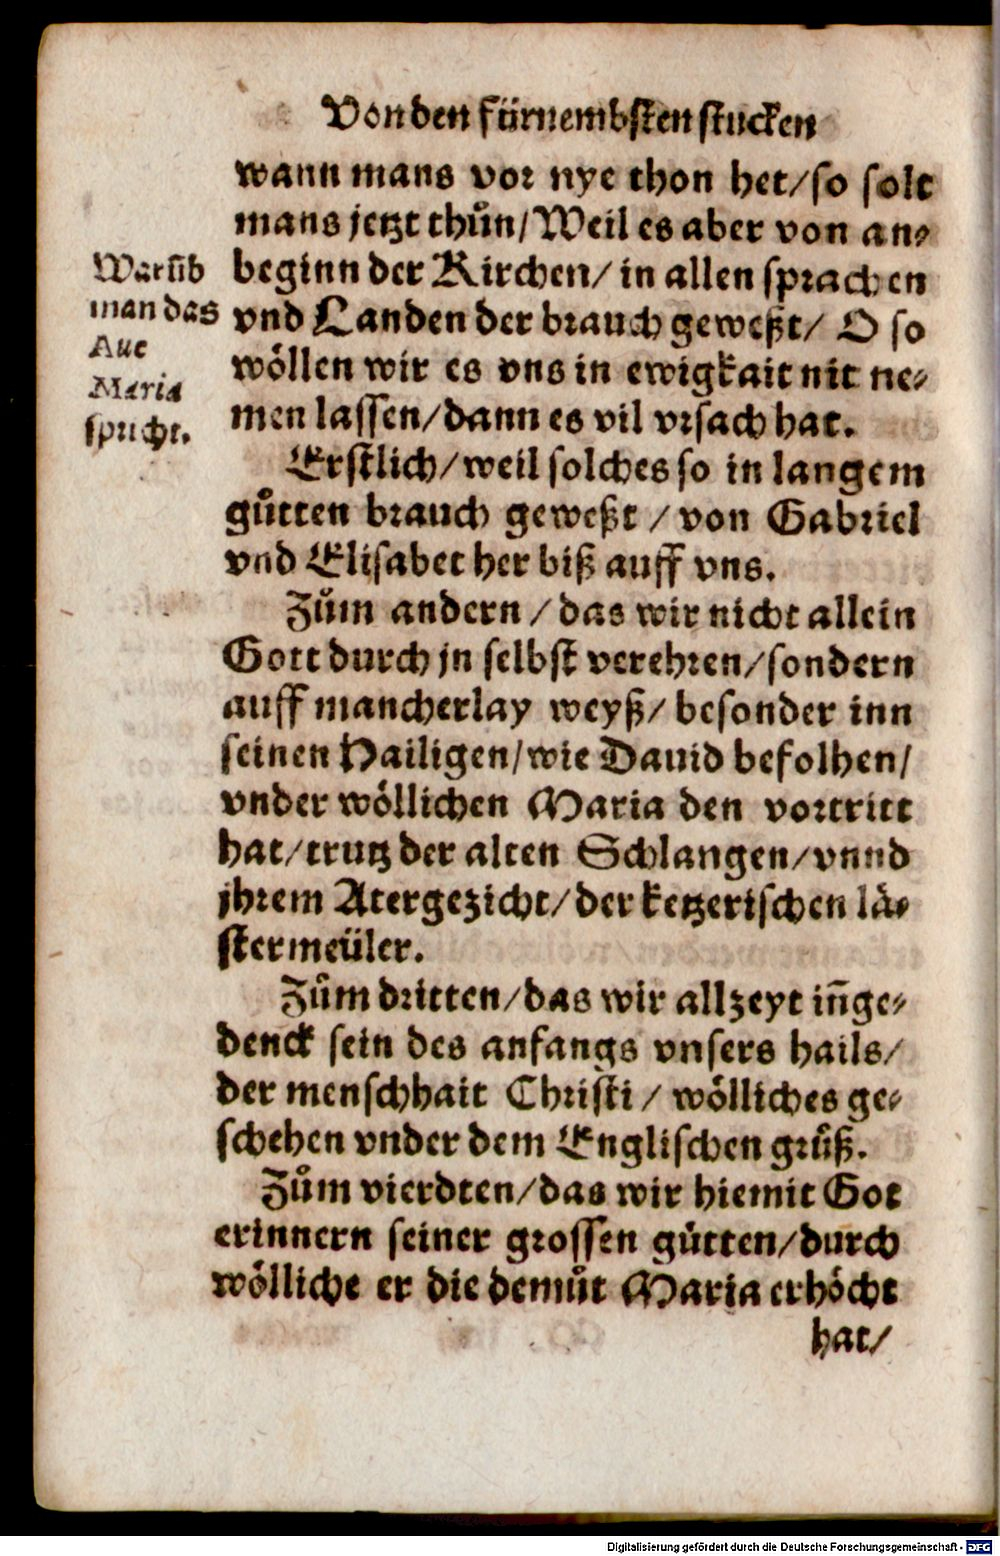 Von den fürnembsten stucken
wann mans vor nye thon het/so solt
mans jetzt thůn/Weil es aber von an⸗
beginn der Kirchen/ in allen sprachen
vnd Landen der brauch geweßt/ O so
wöllen wir es vns in ewigkait nit ne⸗
men lassen/dann es vil vrsach hat.
Warūb
man das
Aue
Maria
spricht.
Erstlich/weil solches so in langem
gůtten brauch geweßt /von Gabriel
vnd Elisabet her biß auff vns.
Zům andern /das wir nicht allein
Gott durch jn selbst verehren/sondern
auff mancherlay weyß/ besonder inn
seinen Hailigen/wie Dauid befolhen/
vnder wöllichen Maria den vortritt
hat/trutz der alten Schlangen/vnnd
jhrem Atergezicht/der ketzerischen lä⸗
stermeüler.
Zům dritten/das wir allzeyt iñge⸗
denck sein des anfangs vnsers hails/
der menschhait Christi / wölliches ge⸗
schehen vnder dem Englischen grůß.
Zům vierdten/das wir hiemit Got
erinnern seiner grossen gůtten/durch
wölliche er die demůt Maria erhöcht
hat/
Digitalisierung gefördert durch die Deutsche Forschungsgemeinschaft - DFG